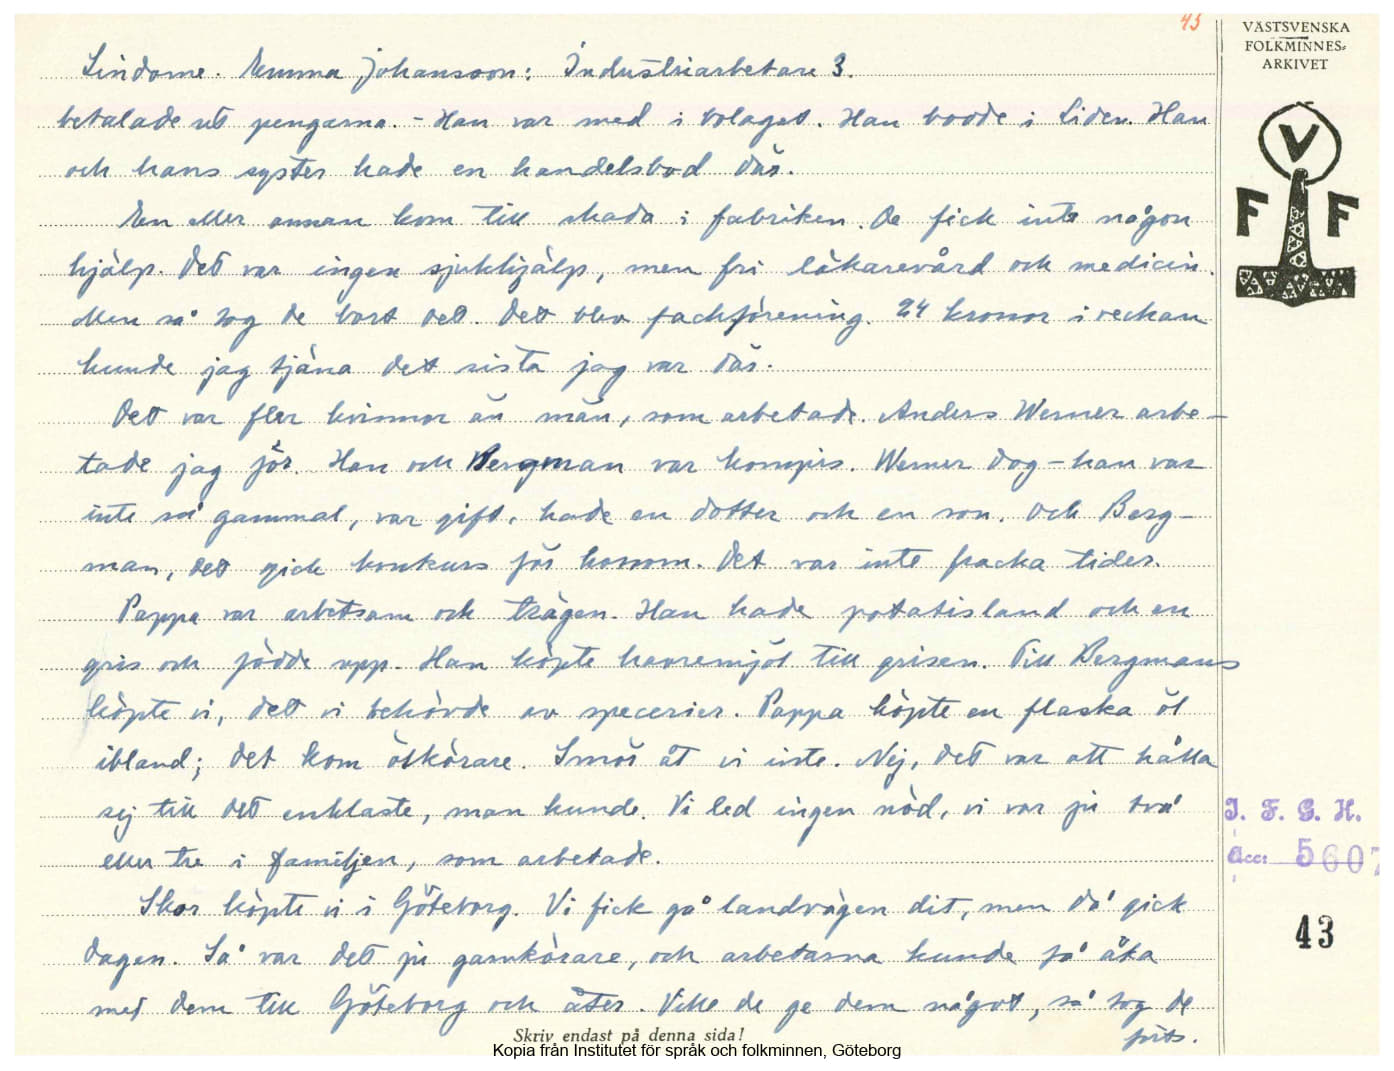 43
VÄSTSVENSKA
FOLKMINNES-
ARKIVET
V
F F
Lindome. Emma Johansson: Industriarbetare 3.
betalade ut pengarna. - Han var med i bolaget. Han bodde i Liden. Han
och hans syster hade en handelsbod där.
En eller annan kom till skada i fabriken. De fick inte någon
hjälp. Det var ingen sjukhjälp, men fri läkarevård och medicin.
Men så tog de bort det. Det blev fackförening. 24 kronor i veckan
kunde jag tjäna det sista jag var där.
Det var fler kvinnor än män, som arbetade. Anders Werner arbe-
tade jag för. Han och Bergman var kompis. Werner dog - han var
inte så gammal, var gift, hade en dotter och en son. Och Berg-
man, det gick konkurs för honom. Det var inte fracka tider.
Pappa var arbetsam och trägen. Han hade potatisland och en
gris och födde upp. Han köpte havremjöl till grisen. Till Bergmans
köpte vi, det vi behövde av specerier. Pappa köpte en flaska öl
ibland; det kom ölkörare. Smör åt vi inte. Nej, det var att hålla
sej till det enklaste, man kunde. Vi led ingen nöd, vi var ju två
eller tre i familjen, som arbetade.
Skor köpte vi i Göteborg. Vi fick gå landvägen dit, men då gick
dagen. Så var det ju garnkörare, och arbetarna kunde få åka
med dem till Göteborg och åter. Ville de ge dem något, så tog de
föts.
I. F. G. H.
acc: 5607
43
Skriv endast på denna sida!
Kopia från Institutet för språk och folkminnen, Göteborg